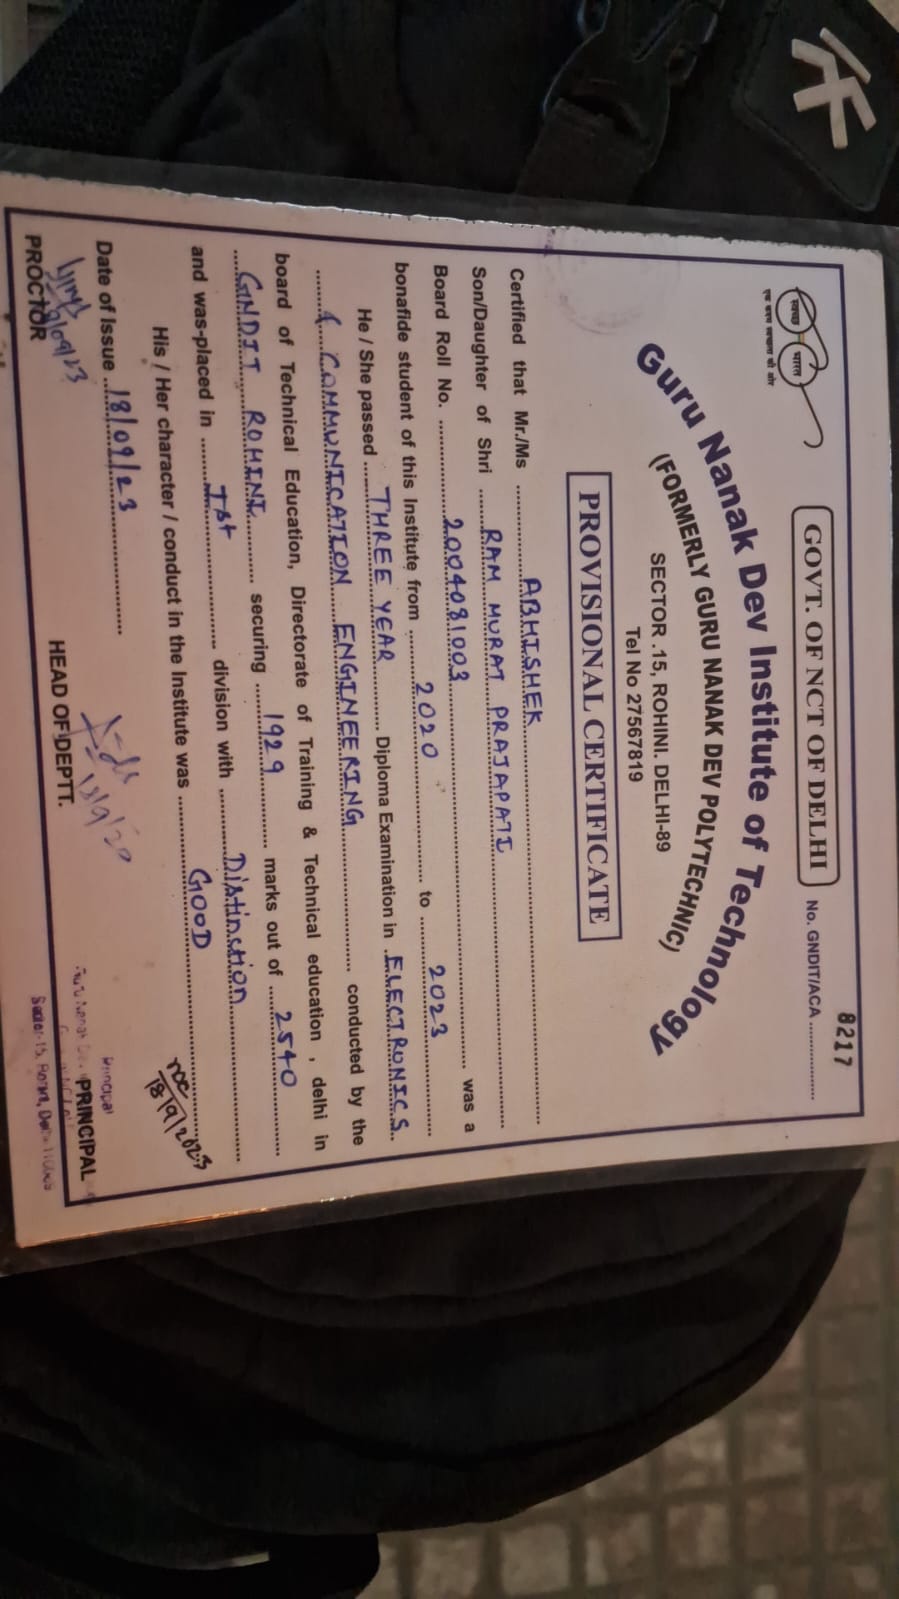 8217
GOVT. OF NCT OF DELHI No. GNDIT/ACA ..............
स्वच्छ भारत
एक कदम स्वच्छता की ओर
Guru Nanak Dev Institute of Technology
(FORMERLY GURU NANAK DEV POLYTECHNIC)
SECTOR .15, ROHINI. DELHI-89
Tel No 27567819
PROVISIONAL CERTIFICATE
Certified that Mr./Ms ABHISHEK
Son/Daughter of Shri RAM MURAT PRAJAPATI
Board Roll No. 2004081003 was a
bonafide student of this Institute from 2020 to 2023
He / She passed THREE YEAR Diploma Examination in ELECTRONICS
& COMMUNICATION ENGINEERING conducted by the
board of Technical Education, Directorate of Training & Technical education , delhi in
GNDIT ROHINI securing 1929 marks out of 2540
and was-placed in Ist division with Distinction
His / Her character / conduct in the Institute was GOOD
Date of Issue 18/09/23
18/9/2023
PROCTOR HEAD OF DEPTT. PRINCIPAL
Principal